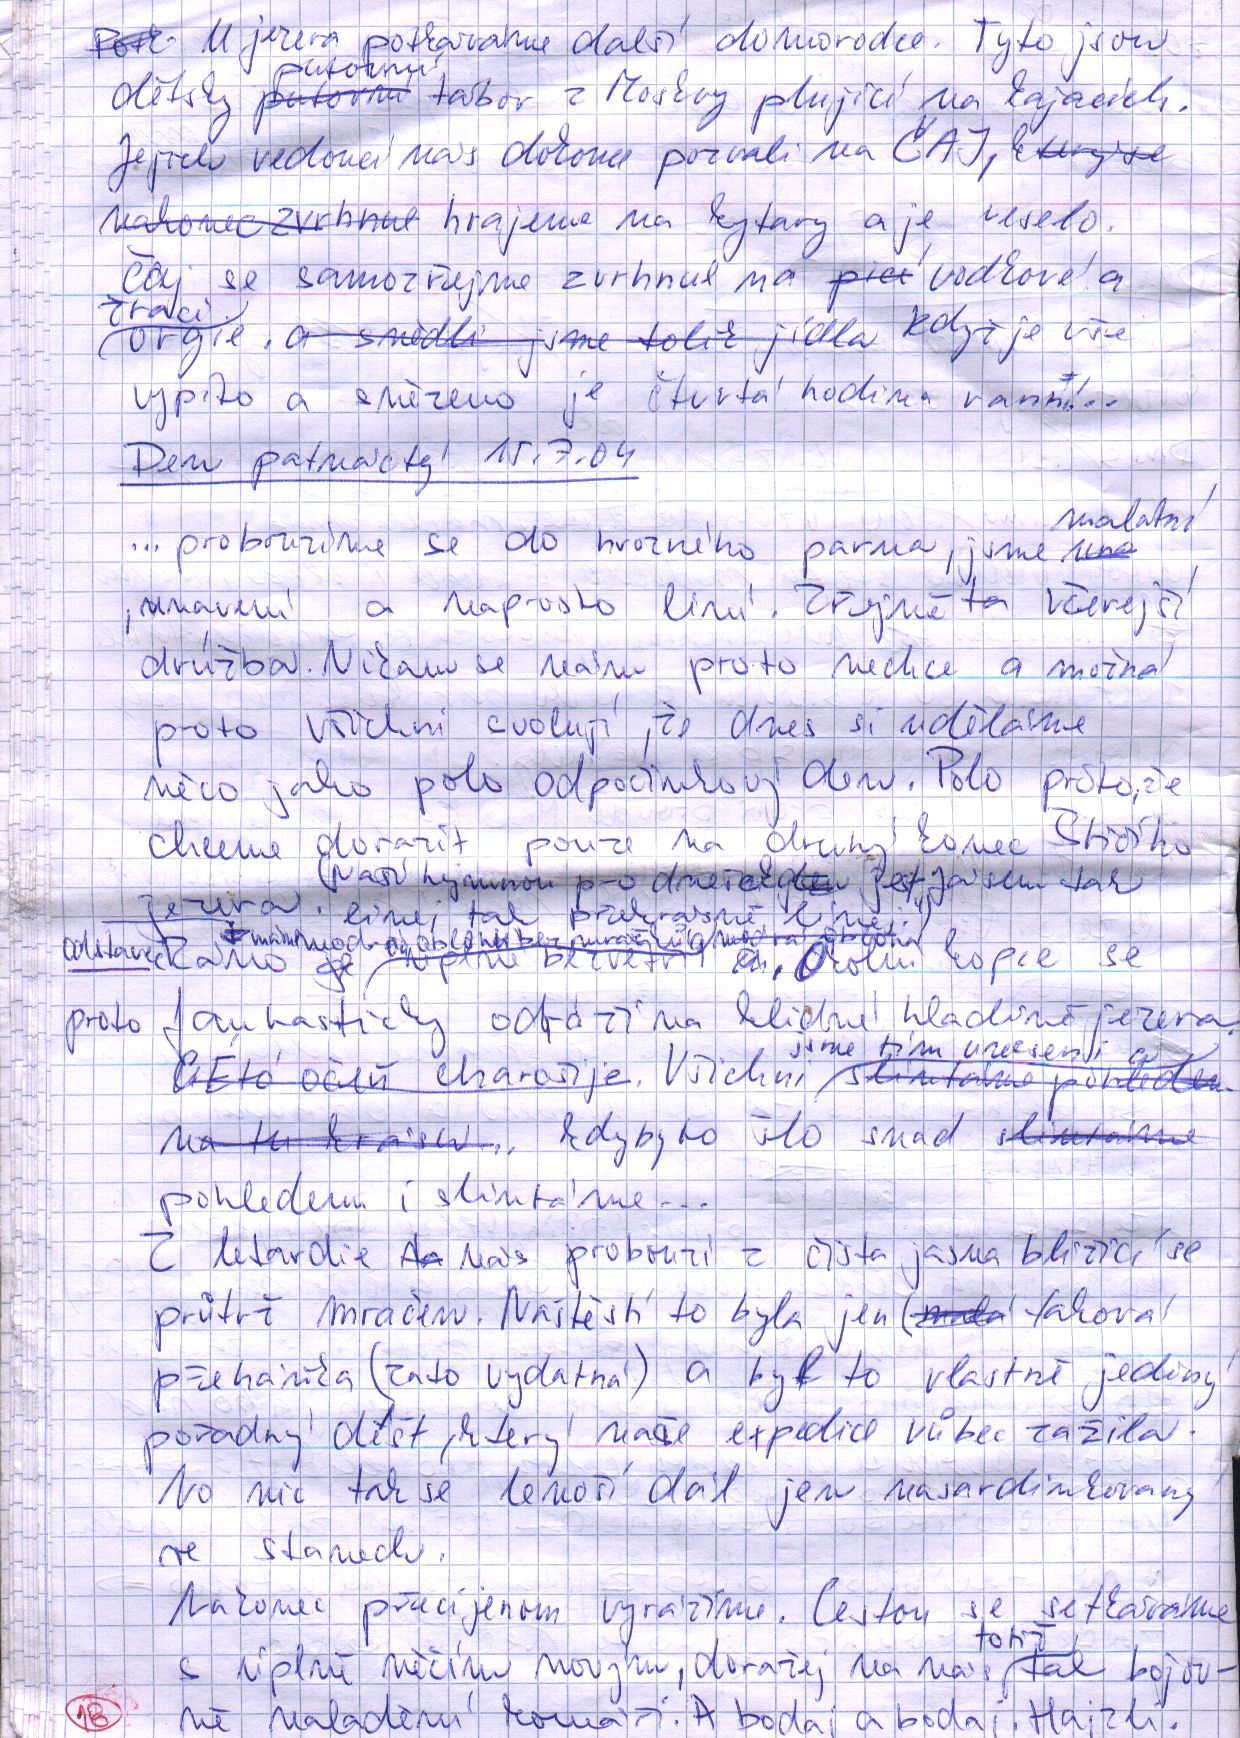 U jezera potkáváme další domorodce. Tyto jsou
putovní
dětský putovní tábor z Moskvy plující na kajacích.
Jejich vedoucí nás dokonce pozvali na ČAJ, který se
nakonec zvrhnul hrajeme na kytary a je veselo.
Čaj se samozřejmě zvrhnul na pící vodkové a
žrací
orgie. a snědli jsme tolik jídla když je vše
vypito a snězeno je čtvrtá hodina ranní...
Den patnáctý 15.7.04
malátní
... probouzíme se do hrozného parna, jsme una
, unavení a naprosto líní. Zřejmě ta včerejší
družba. Nikam se nám proto nechce a možná
proto všichni svolují, že dnes si uděláme
něco jako polo odpočinkový den. Polo proto, že
chceme dorazit pouze na druhý konec Štičího
(Naší hymnou pro dnešek je "Já jsem tak
jezera. línej tak překrásně línej.")
odstavec Ráno je úplné bezvětří. Okolní kopce se
proto fantasticky odráží na klidné hladině jezera.
jsme tím uneseni a
Éto očeň charošije. Všichni slintáme pohledem
na tu krásu... kdyby to šlo snad slintáme
pohledem i slintáme...
Z letargie ta nás probouzí z čista jasna blížící se
průtrž mračen. Naštěstí to byla jen (malá taková
přeháňka (zato vydatná) a byl to vlastně jediný
pořádný déšť, který naše expedice vůbec zažila.
No nic tak se lenoší dál jen nasardinkovaný
ve stanech.
Nakonec přecijenom vyrazíme. Cestou se setkáváme
totiž
s úplně něčím novým, dorážej na nás tak bojov-
ně naladění komáři. A bodaj a bodaj. Hajzli.
18